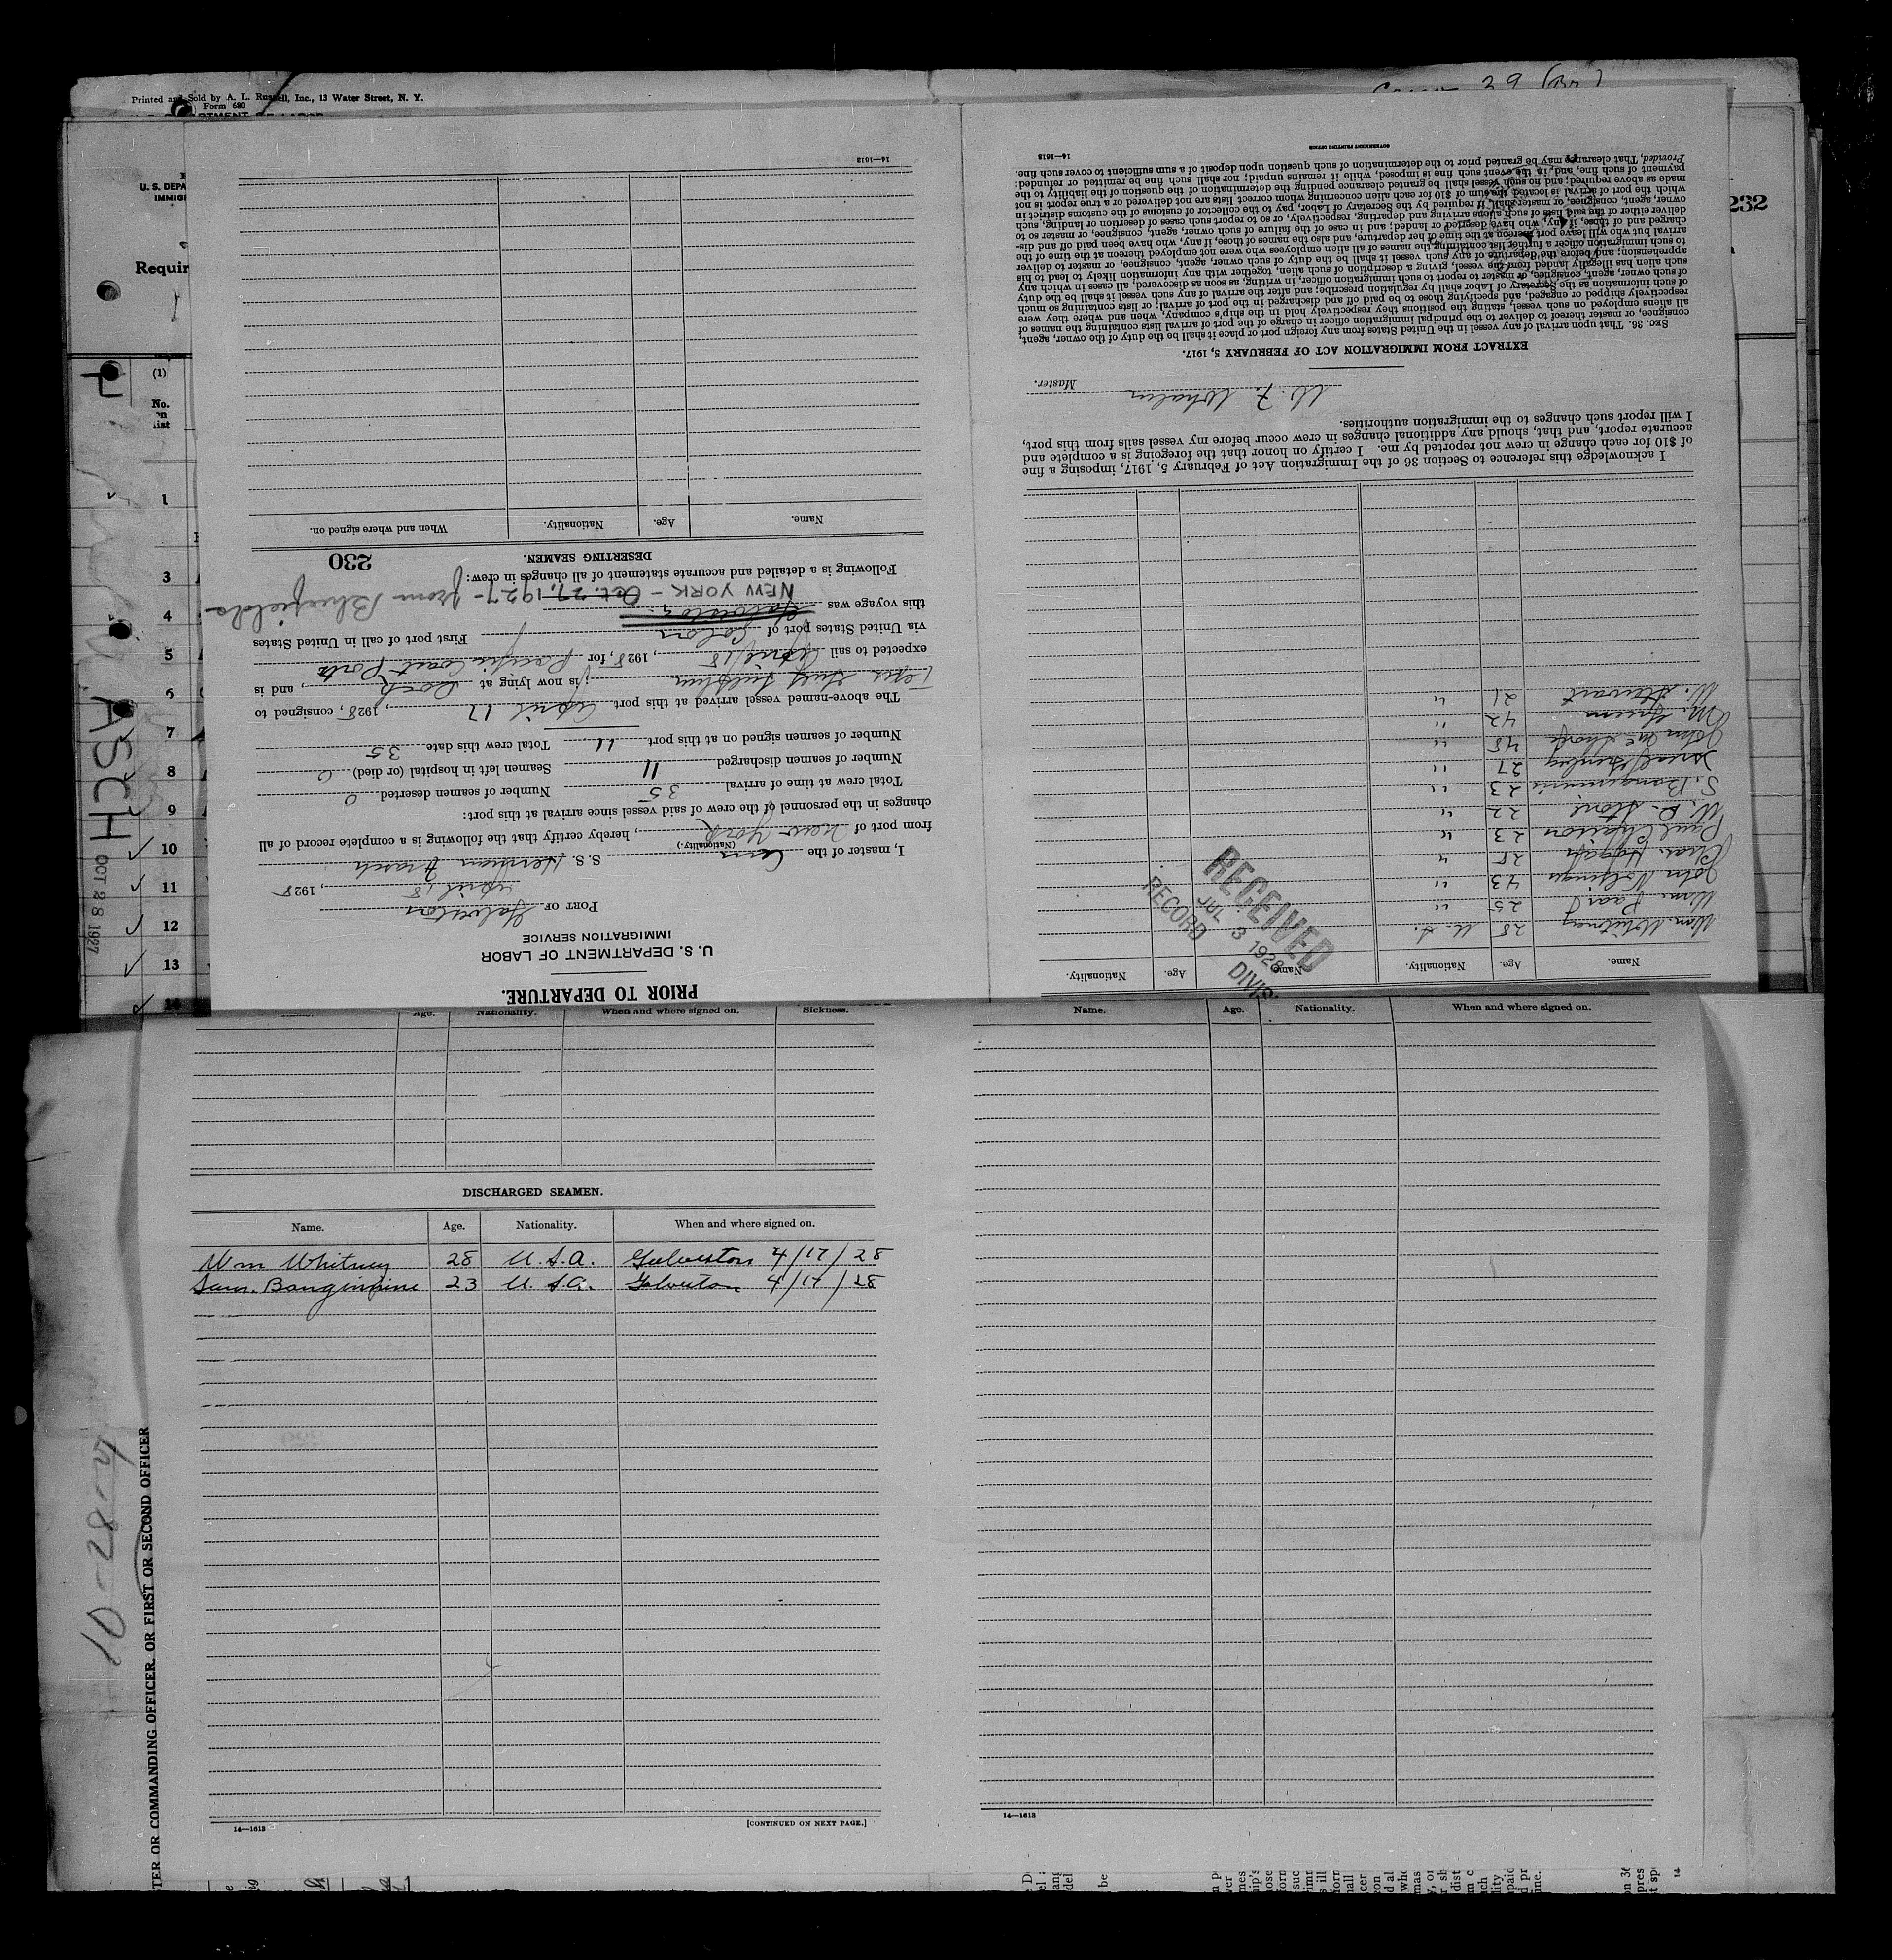 Printed and Sold by A. L. Russell, Inc., 13 Water Street, N. Y.
Form 680
232
U. S. DEPA
IMMIG
Requir
(1)
No.
on
List
1
3
4
5
6
7
8
9
10
11
12
13
14
ASCH
OCT 28 1927
PRIOR TO DEPARTURE.
U. S. DEPARTMENT OF LABOR
IMMIGRATION SERVICE
PORT OF Galveston
April 18, 1928
I, master of the Am S. S. Herman Frasch
(Nationality.)
from port of New York, hereby certify that the following is a complete record of all
changes in the personnel of the crew of said vessel since arrival at this port:
Total crew at time of arrival 35 Number of seamen deserted 0
Number of seamen discharged 11 Seamen left in hospital (or died) 0
Number of seamen signed on at this port 11 Total crew this date 35
The above-named vessel arrived at this port April 17, 1928, consigned to
Texas Gulf Sulphur, is now lying at Dock, and is
expected to sail April 18, 1928, for Pacific Coast Ports
via United States port of Colon First port of call in United States
this voyage was Galveston
NEW YORK - Oct. 27, 1927 - from Bluefields
Following is a detailed and accurate statement of all changes in crew:
230
DESERTING SEAMEN.
Name. Age. Nationality. When and where signed on.
14—1613
Name. Age. Nationality. Name. Age. Nationality.
Wm. Whitney 28 U. S.
Wm. 25 "
John 43 "
Chas. 25 "
Paul 23 "
W. D. Stone 22 "
S. 23 "
27 "
John 45 "
42 "
W. Stewart 21 "
RECEIVED
JUL 3 1928
RECORD DIVIS
I acknowledge this reference to Section 36 of the Immigration Act of February 5, 1917, imposing a fine
of $10 for each change in crew not reported by me. I certify on honor that the foregoing is a complete and
accurate report, and that, should any additional changes in crew occur before my vessel sails from this port,
I will report such changes to the immigration authorities.
W. F. Whalen
Master.
EXTRACT FROM IMMIGRATION ACT OF FEBRUARY 5, 1917.
SEC. 36. That upon arrival of any vessel in the United States from any foreign port or place it shall be the duty of the owner, agent,
consignee, or master thereof to deliver to the principal immigration officer in charge of the port of arrival lists containing the names of
all aliens employed on such vessel, stating the positions they respectively hold in the ship's company, when and where they were
respectively shipped or engaged, and specifying those to be paid off and discharged in the port of arrival; or lists containing so much
of such information as the Secretary of Labor shall by regulation prescribe; and after the arrival of any such vessel it shall be the duty
of such owner, agent, consignee, or master to report to such immigration officer, in writing, as soon as discovered, all cases in which any
such alien has illegally landed from the vessel, giving a description of such alien, together with any information likely to lead to his
apprehension; and before the departure of any such vessel it shall be the duty of such owner, agent, consignee, or master to deliver
to such immigration officer a further list containing the names of all alien employees who were not employed thereon at the time of the
arrival but who will leave port thereon at the time of her departure, and also the names of those, if any, who have been paid off and dis-
charged and of those, if any, who have deserted or landed; and in case of the failure of such owner, agent, consignee, or master so to
deliver either of the said lists of such aliens arriving and departing, respectively, or so to report such cases of desertion or landing, such
owner, agent, consignee, or master shall, if required by the Secretary of Labor, pay to the collector of customs of the customs district in
which the port of arrival is located the sum of $10 for each alien concerning whom correct lists are not delivered or a true report is not
made as above required; and no such vessel shall be granted clearance pending the determination of the question of the liability to the
payment of such fine, and, in the event such fine is imposed, while it remains unpaid; nor shall such fine be remitted or refunded:
Provided, That clearance may be granted prior to the determination of such question upon deposit of a sum sufficient to cover such fine.
14—1613
GOVERNMENT PRINTING OFFICE
Age. Nationality. When and where signed on. Sickness.
DISCHARGED SEAMEN.
Name. Age. Nationality. When and where signed on.
Wm Whitney 28 U. S. A. Galveston 4/17/28
23 U. S. A. Galveston 4/17/28
14—1613
[CONTINUED ON NEXT PAGE.]
Name. Age. Nationality. When and where signed on.
14—1613
TER OR COMMANDING OFFICER, OR FIRST OR SECOND OFFICER